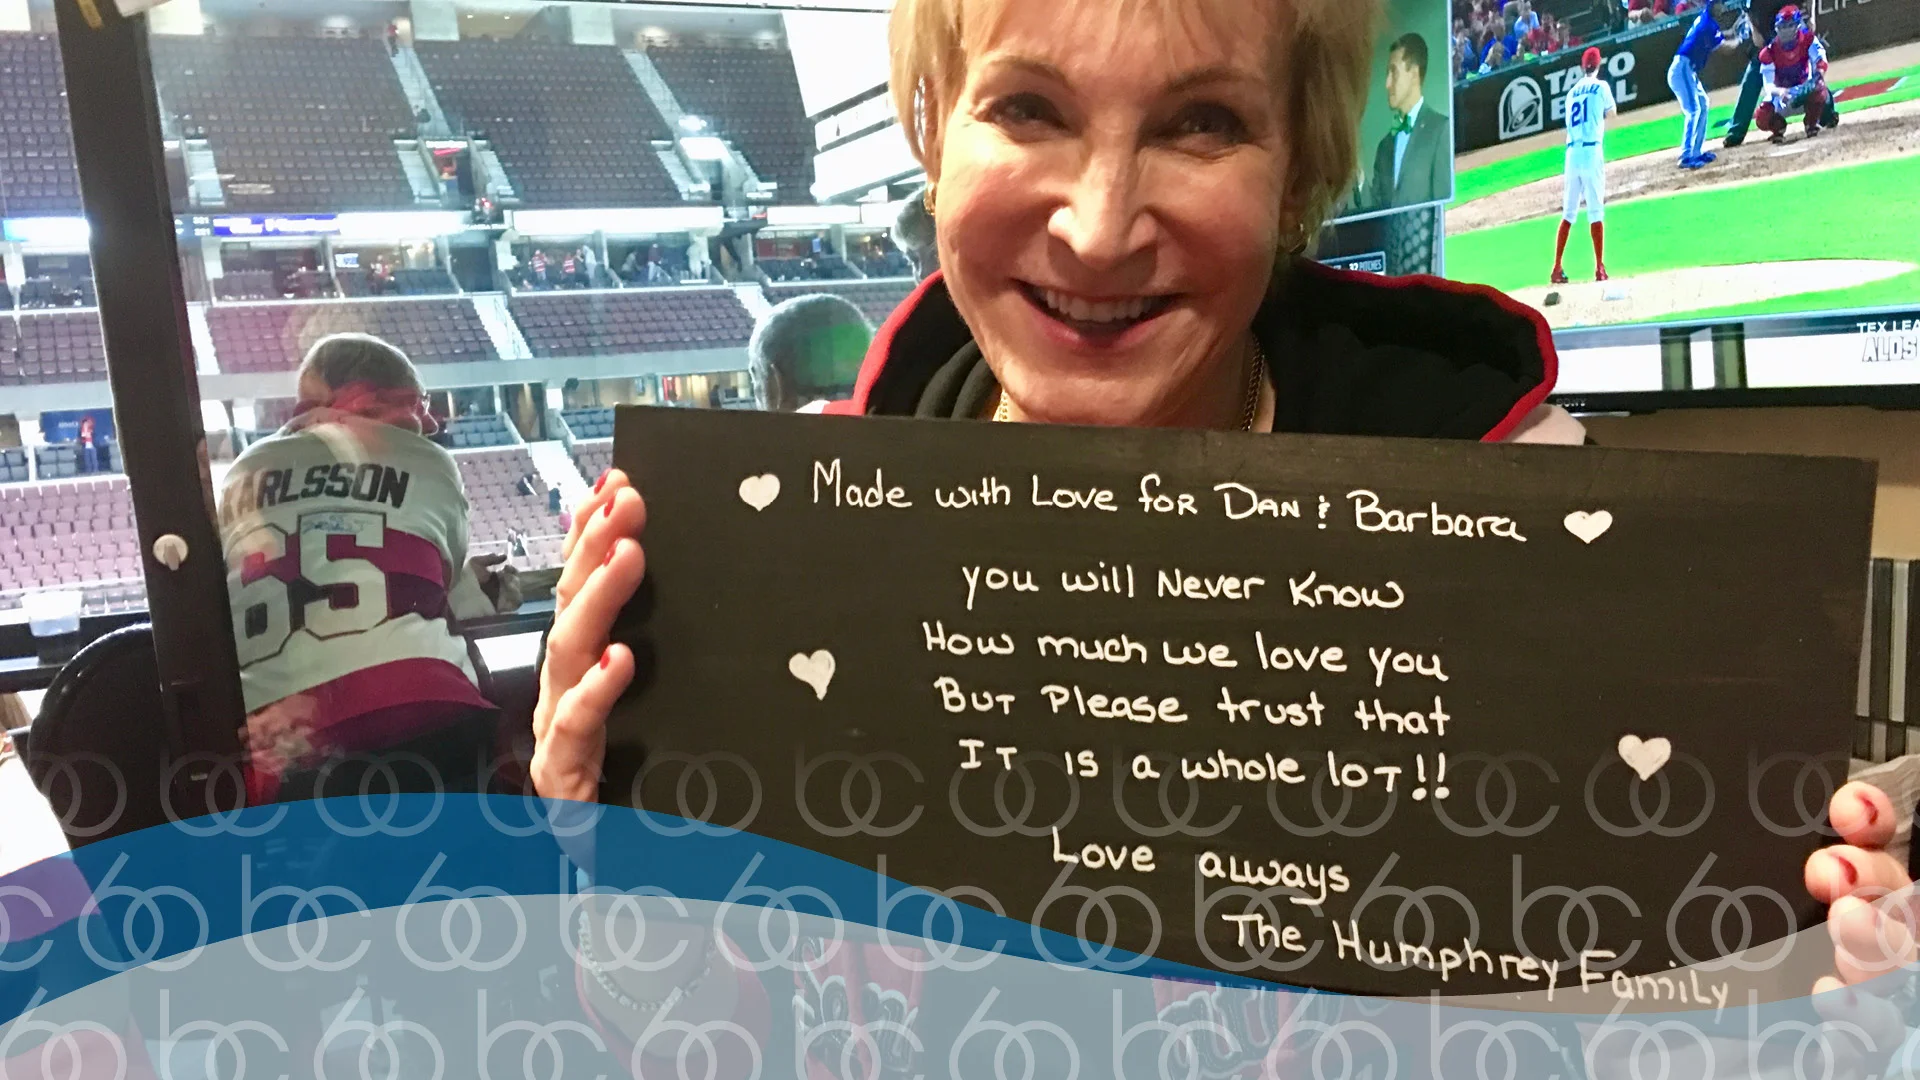 Made with Love for Dan & Barbara
you will Never Know
How much we love you
But Please trust that
IT is a whole loT!!
Love always
The Humphrey Family
KARLSSON
65
TACO
BELL
21
TEX LEA
ALDS
bc60